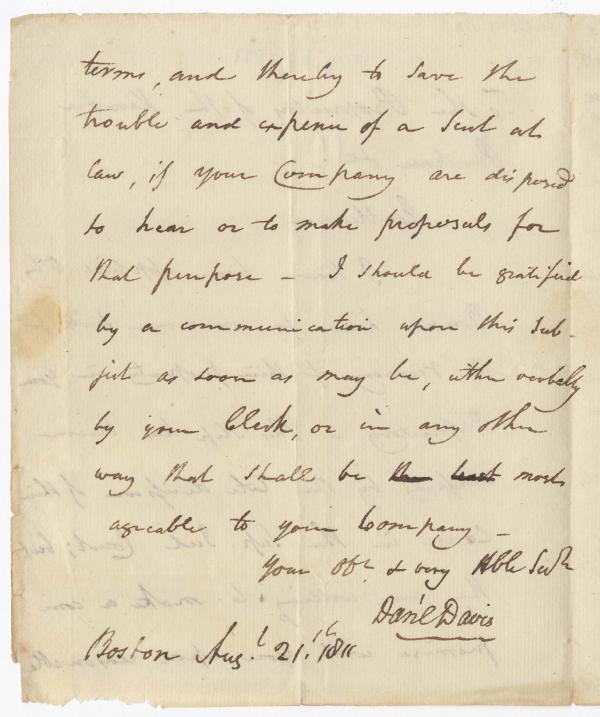 terms, and thereby to save the
trouble and expense of a Suit at
law, if your Company are disposed
to hear or to make proposals for
that purpose – I should be gratified
by a communication upon this Sub-
ject as soon as may be, either verbally
by your Clerk, or in any other
way that shall be the least most
agreable to your Company –
Your Obt. & very Hble Servt
Danl Davis
Boston Augt. 21st. 1811